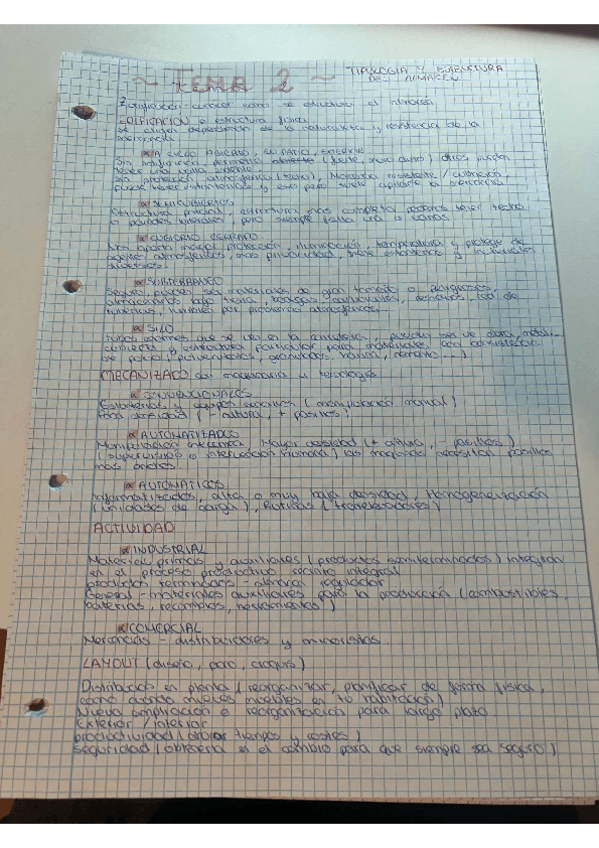 ~ TEMA 2 ~ TIPOLOGIA Y ESTRUCTURA
DEL ALMACEN
Zonificación - conocer como se estructura el
EDIFICACION o estructura física
se eligen dependiendo de la naturaleza y resistencia de la
mercancía
A CIELO ABIERTO, EN PATIO, EXTERIOR
Sin perímetro otros pueden
tener una
Sin protección atmosférica (techo), Mercancía resistente /
puede tener estanterías y eso pero suele apilarse la mercancía
SEMICUBIERTOS
Estructura parcial, estructura mas completa podemos tener techo
o paredes pero siempre falta una o varias
CUBIERTO CERRADO
Nos aporta mayor protección, iluminación, temperatura y protege de
agentes atmosféricos, mas privacidad, tiene estanterías y
diversos.
SUBTERRANEO
Seguro, pueden ser materiales de gran tamaño o peligrosos,
bajo tierra, bodegas, carburantes, red de
por atmosféricos.
SILO
que se ven en la pueden ser de
y particular para materiales con
de polvo (pulverulentos, granulados, harina, )
MECANIZADO son maquinaria y tecnología
CONVENCIONALES
Estanterías y equipos sencillos (manipulación manual)
Poca densidad (- altura, + pasillos)
AUTOMATIZADOS
Manipulación mecánica, Mayor densidad (+ altura, - pasillos)
(supervisión o intervención humana) las maquinas necesitan pasillos
mas anchos.
AUTOMATICOS
Informatizados, alta o muy alta densidad, Homogeneización
(unidades de carga), Rutinas (transelevadores)
ACTIVIDAD
INDUSTRIAL
Materias primas y auxiliares (productos semiterminados) integran
en el proceso productivo recinto integral
productos terminados - almacen regulador
General - materiales auxiliares para la producción (combustibles,
baterias, recambios, herramientas)
COMERCIAL
Mercancías - distribuidores y minoristas
LAYOUT (diseño, plano, croquis)
Distribución en planta (reorganizar, planificar de forma física,
como cuando mueves muebles en tu habitación)
Nueva ampliación o reorganización para largo plazo
Exterior / interior
productividad (ahorrar tiempos y costes)
Seguridad (obtenerla en el cambio para que siempre sea seguro)